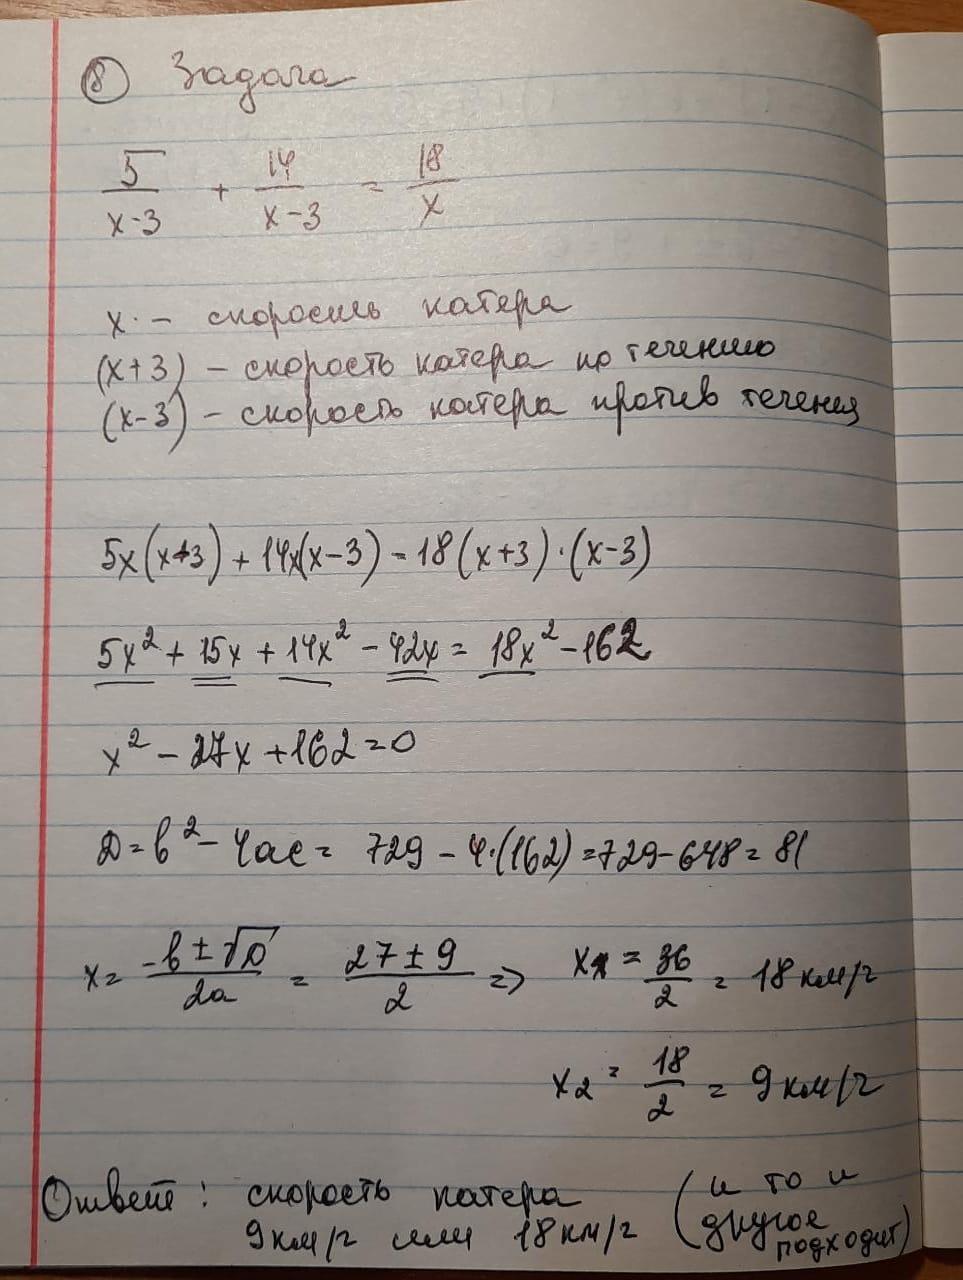 ⑧ Задача
5/(x-3) + 14/(x-3) = 18/x
x. - скорость катера
(x+3) - скорость катера по течению
(x-3) - скорость катера против течения
5x(x+3) + 14x(x-3) = 18(x+3)·(x-3)
5x² + 15x + 14x² - 42x = 18x² - 162
x² - 27x + 162 = 0
D = b² - 4ac = 729 - 4·(162) = 729 - 648 = 81
x = (-b ± √D)/2a = (27 ± 9)/2 => x₁ = 36/2 = 18 км/г
x₂ = 18/2 = 9 км/г
Ответ: скорость катера (и то и
9 км/г или 18 км/г другое
подходит)